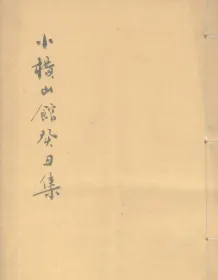 小横山館癸丑集